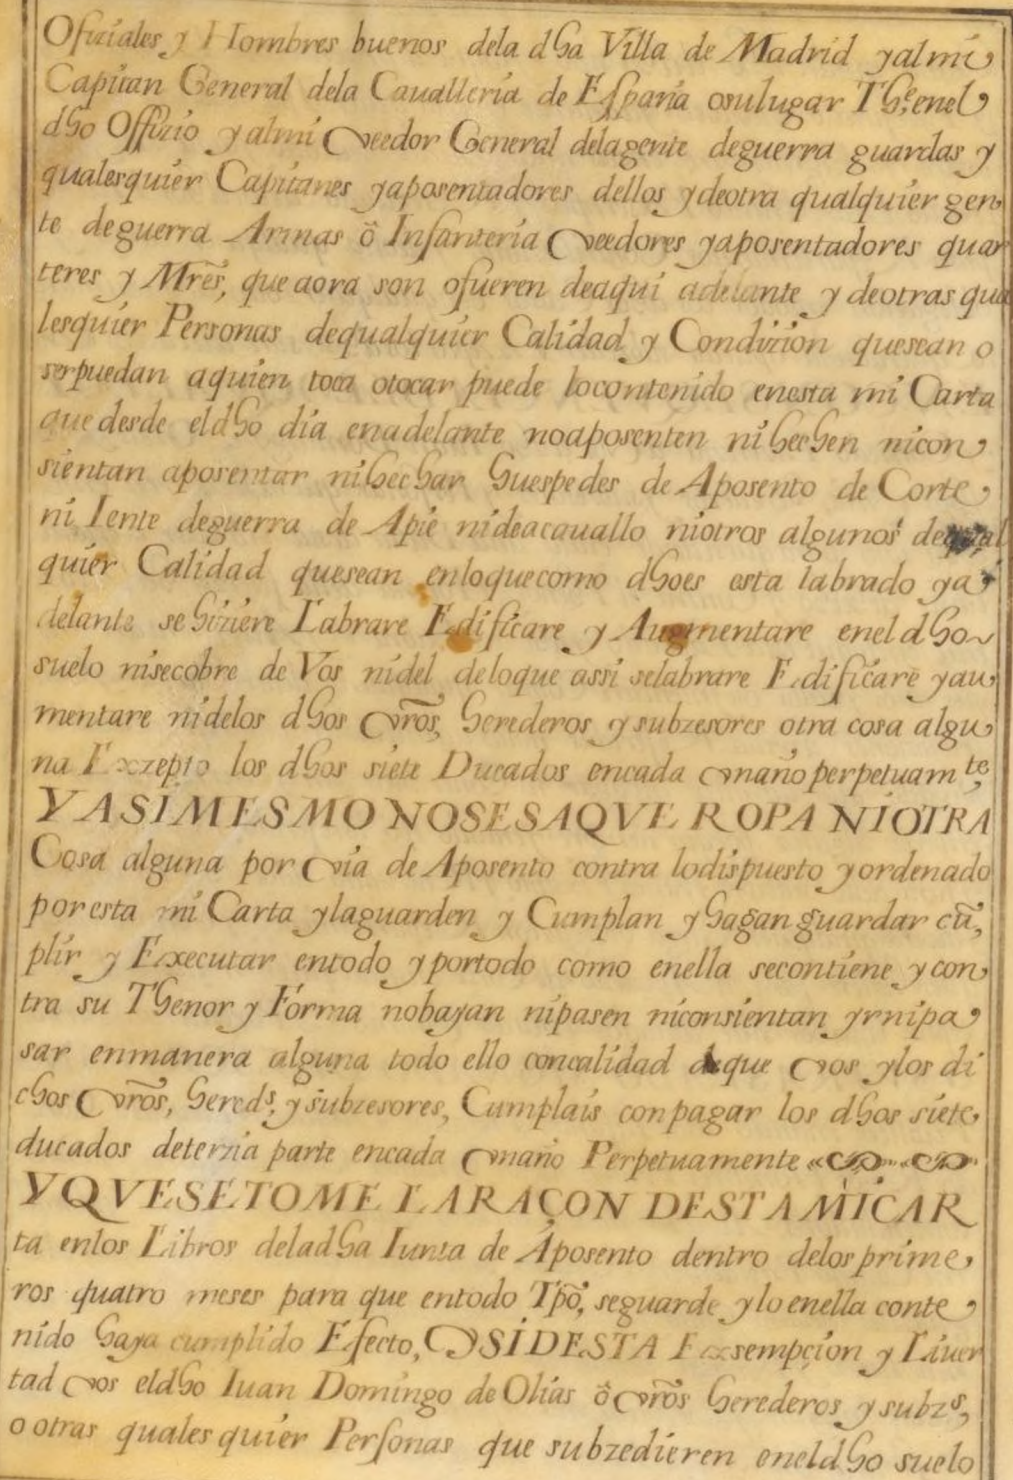 Ofiziales y Hombres buenos dela dha Villa de Madrid yalmi
Capitan General dela Cauallería de España osulugar Thẽ, enel
dho Offizio yalmi Veedor General delagente deguerra guardas y
qualesquier Capitanes yaposentadores dellos ydeotra qualquier gen
te deguerra Armas ô Infantería Veedores yaposentadores quar
teres y Mrẽs, que aora son ofueren deaqui adelante y deotras qua
lesquier Personas dequalquier Calidad y Condizion quesean o
serpuedan aquien toca otocar puede locontenido enesta mi Carta
que desde eldho dia enadelante noaposenten nihechen nicon
sientan aposentar nihechar huespedes de Aposento de Corte
ni Iente deguerra de Apie nideacauallo niotros algunos dequal
quier Calidad quesean enloquecomo dhoes esta labrado ya
delante se hiziere Labrare Edificare y Augmentare enel dho
suelo nisecobre de Vos nidel deloque assi selabrare Edificare yau
mentare nidelos dhos Vrõs, herederos y subzesores otra cosa algu
na Exzepto los dhos siete Ducados encada Vnaño perpetuamte,
Y ASIMESMO NOSESAQVE ROPA NIOTRA
Cosa alguna por Via de Aposento contra lodispuesto yordenado
poresta mi Carta ylaguarden y Cumplan y hagan guardar cũ,
plir y Executar entodo yportodo como enella secontiene ycon
tra su Thenor y Forma nobayan nipasen niconsientan yrnipa
sar enmanera alguna todo ello concalidad deque Vos ylos di
chos Vrõs, hereds, y subzesores, Cumplais conpagar los dhos siete
ducados deterzia parte encada Vnaño Perpetuamente
Y QVESETOME LARAÇON DESTAMICAR
ta enlos Libros deladha Iunta de Aposento dentro delosprime
ros quatro meses para que entodo Tpõ, seguarde yloenella conte
nido haya cumplido Efecto, YSIDESTA Exsempçion y Liuer
tad Vos eldho Iuan Domingo de Olias ô Vrõs herederos y subzs,
o otras qualesquier Personas que subzedieren eneldho suelo